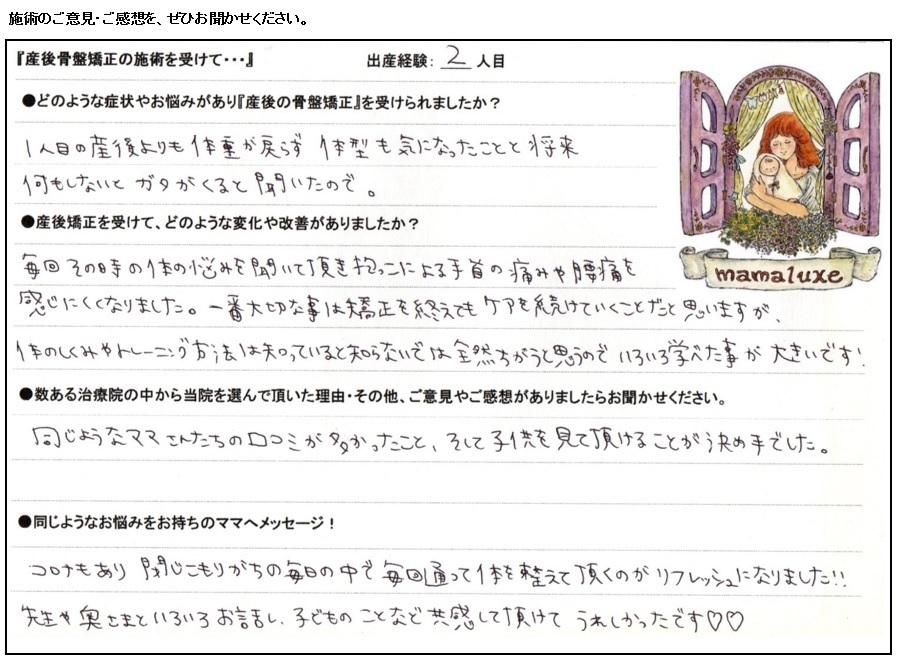 施術のご意見・ご感想を、ぜひお聞かせください。
『産後骨盤矯正の施術を受けて・・・』 出産経験: 2 人目
●どのような症状やお悩みがあり『産後の骨盤矯正』を受けられましたか？
1人目の産後よりも体重が戻らず 体型も気になったことと将来
何もしないとガタがくると聞いたので。
●産後矯正を受けて、どのような変化や改善がありましたか？
毎回その時の体の悩みを聞いて頂き抱っこによる手首の痛みや腰痛を
感じにくくなりました。一番大切な事は矯正を終えてもケアを続けていくことだと思いますが、
体のしくみやトレーニング方法は知っていると知らないでは全然ちがうと思うのでいろいろ学べた事が大きいです!
●数ある治療院の中から当院を選んで頂いた理由・その他、ご意見やご感想がありましたらお聞かせください。
同じようなママさんたちの口コミが多かったこと、そして子供を見て頂けることが決め手でした。
●同じようなお悩みをお持ちのママへメッセージ！
コロナもあり 閉じこもりがちの毎日の中で毎回通って体を整えて頂くのがリフレッシュになりました!!
先生や奥さまといろいろお話し、子どものことなど共感して頂けてうれしかったです♡♡
mamaluxe